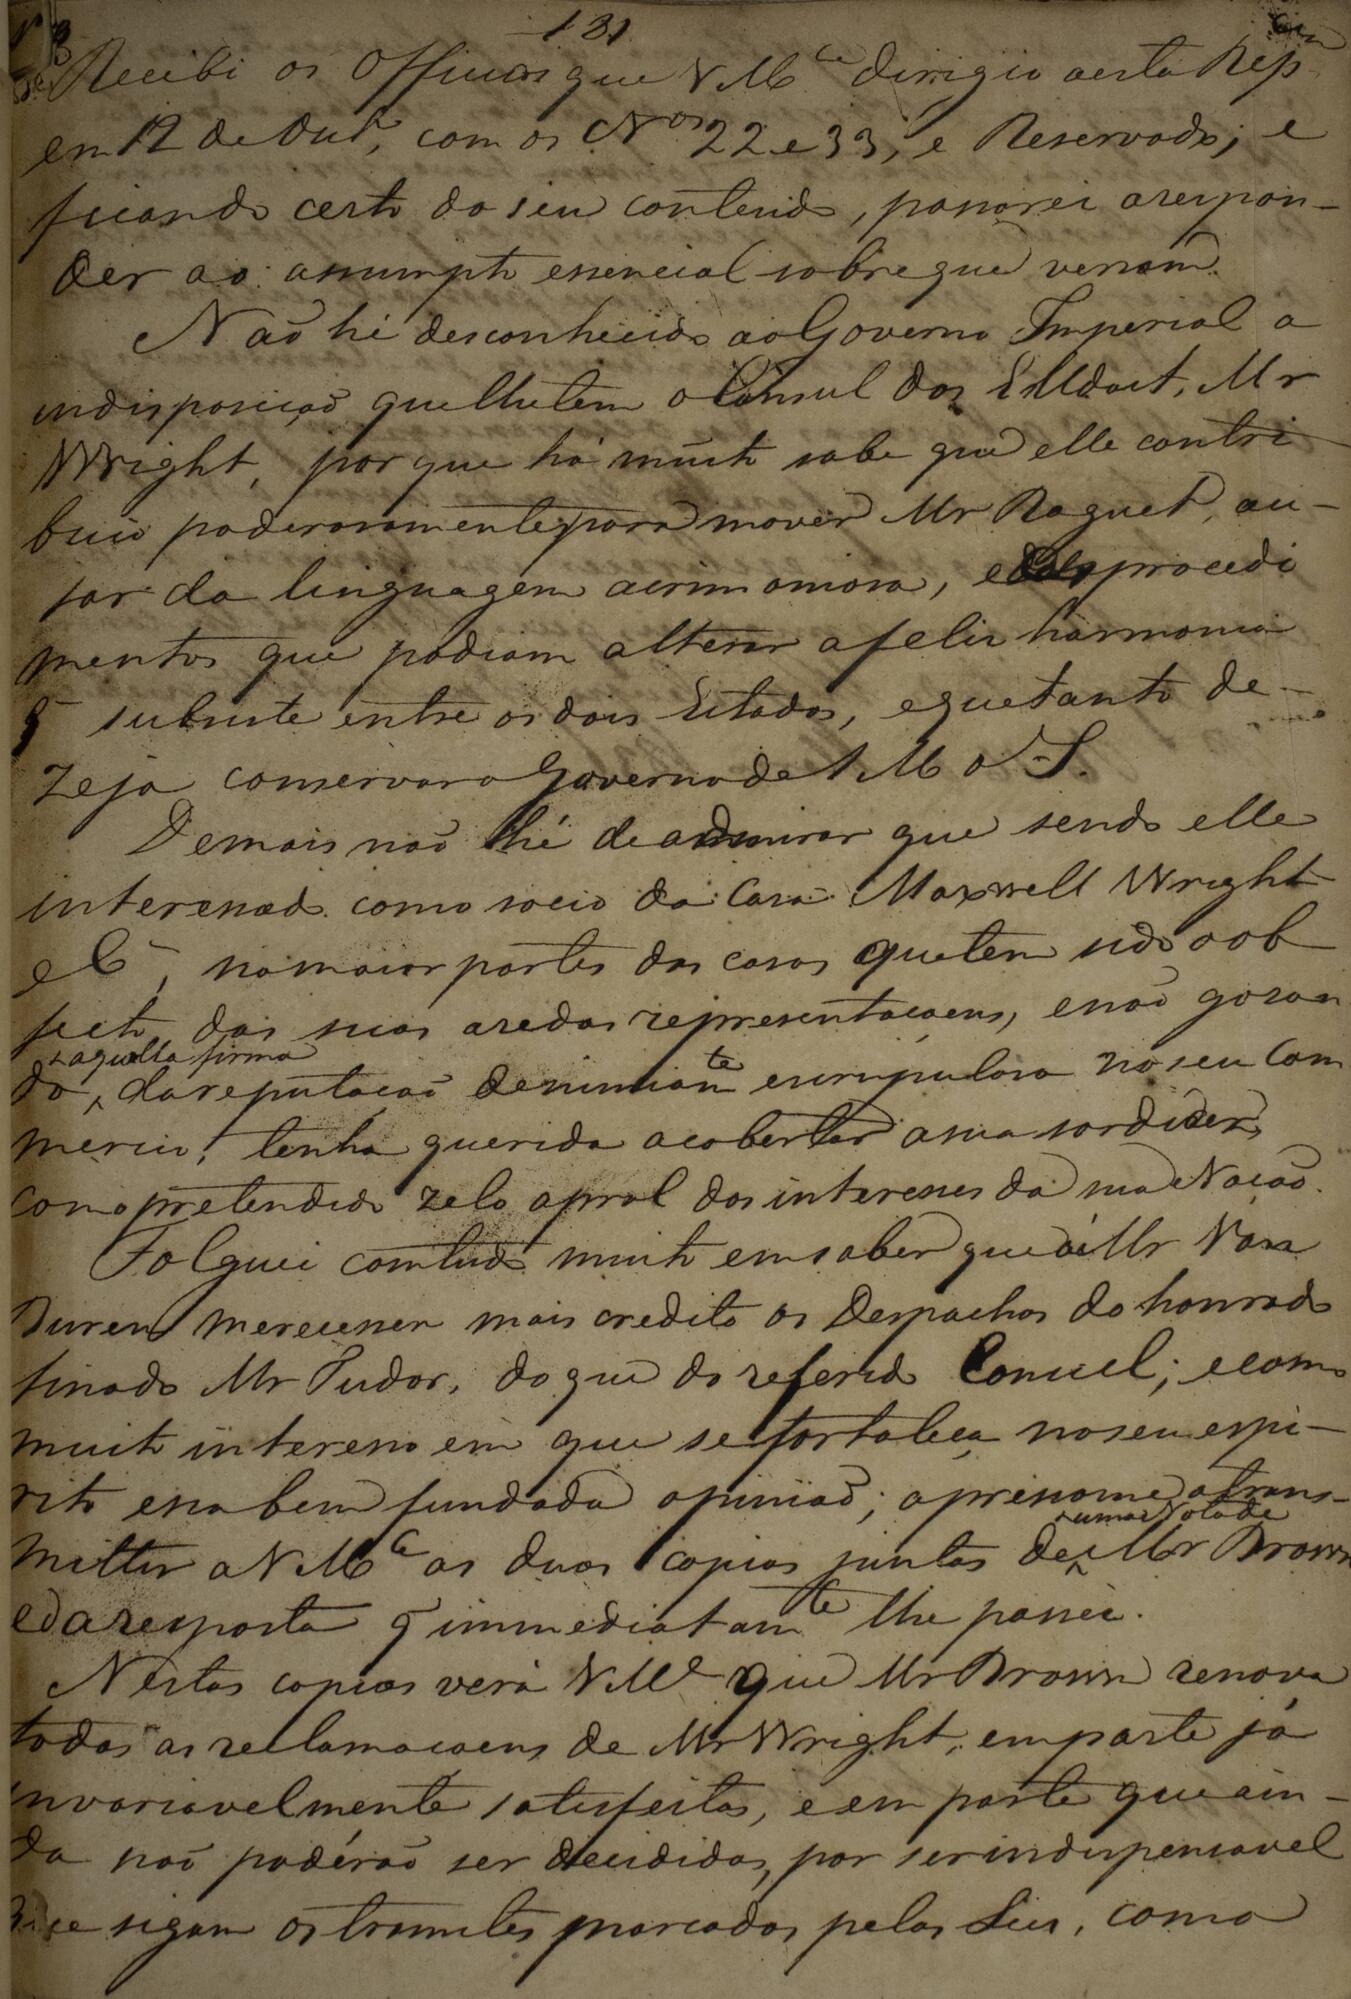 131
Recebi os Officios que V Mce dirigio a esta Rep
em 12 de Outo, com os Nos 22 e 33, e Reservado; e
ficando certo do seu conteudo, passarei a respon-
der ao assumpto essencial sobre que versam.
Não hé desconhecido ao Governo Imperial a
indisposição que lhe tem o Consul dos EUdost, Mr
Wright, por que há muito sabe que elle contri
buio poderosamente para mover Mr Raguet, au-
tor da linguagem acrimoniosa, e procedi
mentos que podiam alterar a feliz harmonia
q subsiste entre os dois Estados, e que tanto de-
zeja conservar o Governo de S M O I.
Demais não hé de admirar que sendo elle
interessado como socio da Casa Maxwell Wright
e C, na maior partes dos casos que tem sido o ob
jecto das suas azedas representaçoens, e não gosan
do, aquella firma da reputação de nimiamte escrupulosa no seu Com
mercio, tenha querido acobertar a sua sordidez
com o pretendido zelo a prol dos interesses da sua Nação.
Folguei comtudo muito em saber que á Mr Van
Buren merecessem mais credito os Despachos do honrado
finado Mr Tudor, do que do referido Consul; e como
muito interesso em que se fortaleça no seu espi-
rito essa bem fundada opinião; apresso me a trans-
mittir a V Mce as duas copias juntas de uma Nota de Mr Brown
e da resposta q immediatamte lhe passei.
Nestas copias verá V Me que Mr Brown renova
todas as reclamaçoens de Mr Wright, em parte já
invariavelmente satisfeitas, e em parte que ain-
da não podérão ser decididas, por ser indispensavel
se sigam os tramites marcados pelas Leis, como